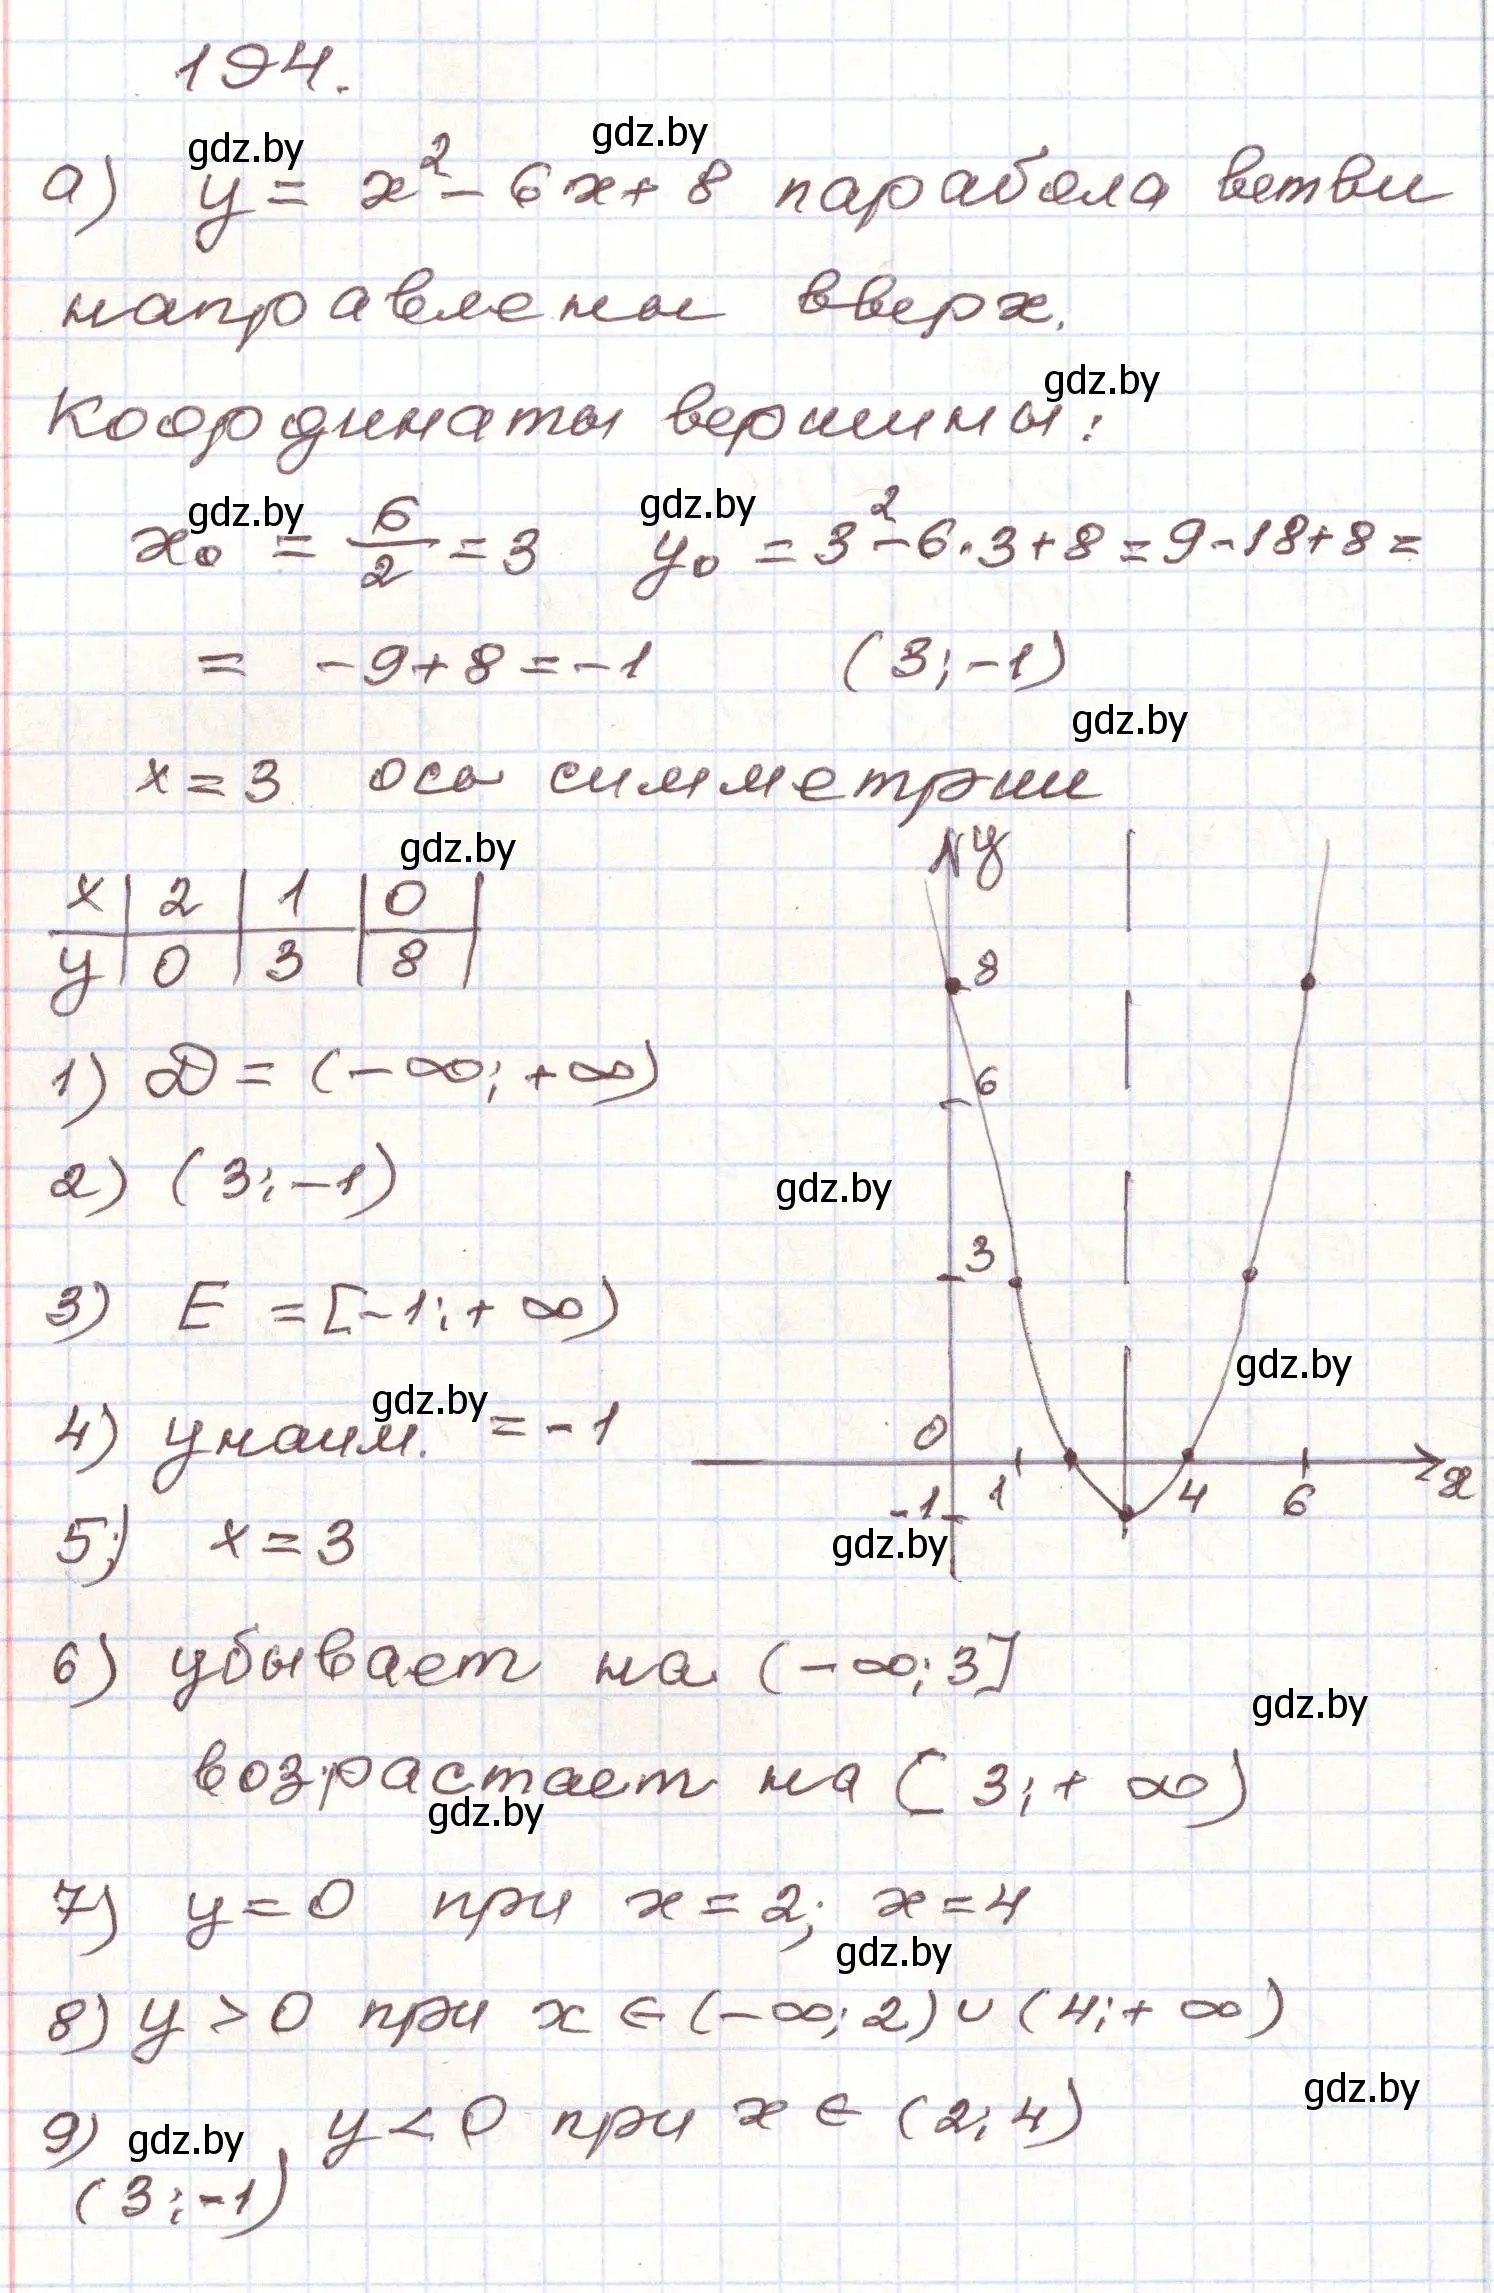 194.
gdz.by gdz.by
а) y = x² - 6x + 8 парабола ветви
направлены вверх.
gdz.by
Координаты вершины:
gdz.by gdz.by
x₀ = 6/2 = 3 y₀ = 3² - 6·3 + 8 = 9 - 18 + 8 =
= -9 + 8 = -1 (3; -1)
gdz.by
x = 3 ось симметрии
gdz.by
x | 2 | 1 | 0 |
y | 0 | 3 | 8 |
y
8
6
3
0
-1 1 4 6 x
1) D = (-∞; +∞)
2) (3; -1)
gdz.by
3) E = [-1; + ∞)
gdz.by
gdz.by
4) y наим. = -1
5) x = 3
gdz.by
6) убывает на (-∞; 3]
gdz.by
возрастает на [3; + ∞)
gdz.by
7) y = 0 при x = 2; x = 4
gdz.by
8) y > 0 при x ∈ (-∞; 2) ∪ (4; + ∞)
gdz.by
9) y < 0 при x ∈ (2; 4)
gdz.by
(3; -1)